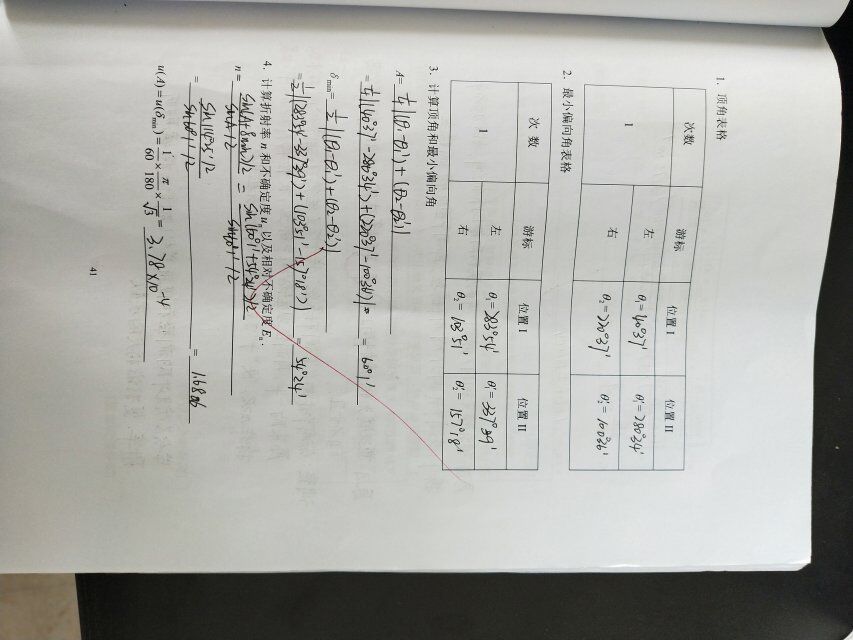 1. 顶角表格
次数 游标 位置 I 位置 II
1 左 θ₁=40°37′ θ₁′=280°34′
右 θ₂=220°37′ θ₂′=100°36′
2. 最小偏向角表格
次 数 游标 位置 I 位置 II
1 左 θ₁=283°54′ θ₁′=337°39′
右 θ₂=103°51′ θ₂′=157°18′
3. 计算顶角和最小偏向角
A=
=60°1′
δmin= ½|(θ₁-θ₁′)+(θ₂-θ₂′)|
=½|(283°54′-337°39′)+(103°51′-157°18′)| =54°24′
4. 计算折射率 n 和不确定度 uₙ 以及相对不确定度 Eₙ.
n= sin(A+δmin)/2 / sinA/2 = sin(60°1′+54°24′)/2 / sin60°1′/2
= sin114°25′/2 / sin60°1′/2 = 1.6806
u(A)=u(δmin)=1/60×π/180×1/√3= 3.78×10⁻⁴
41